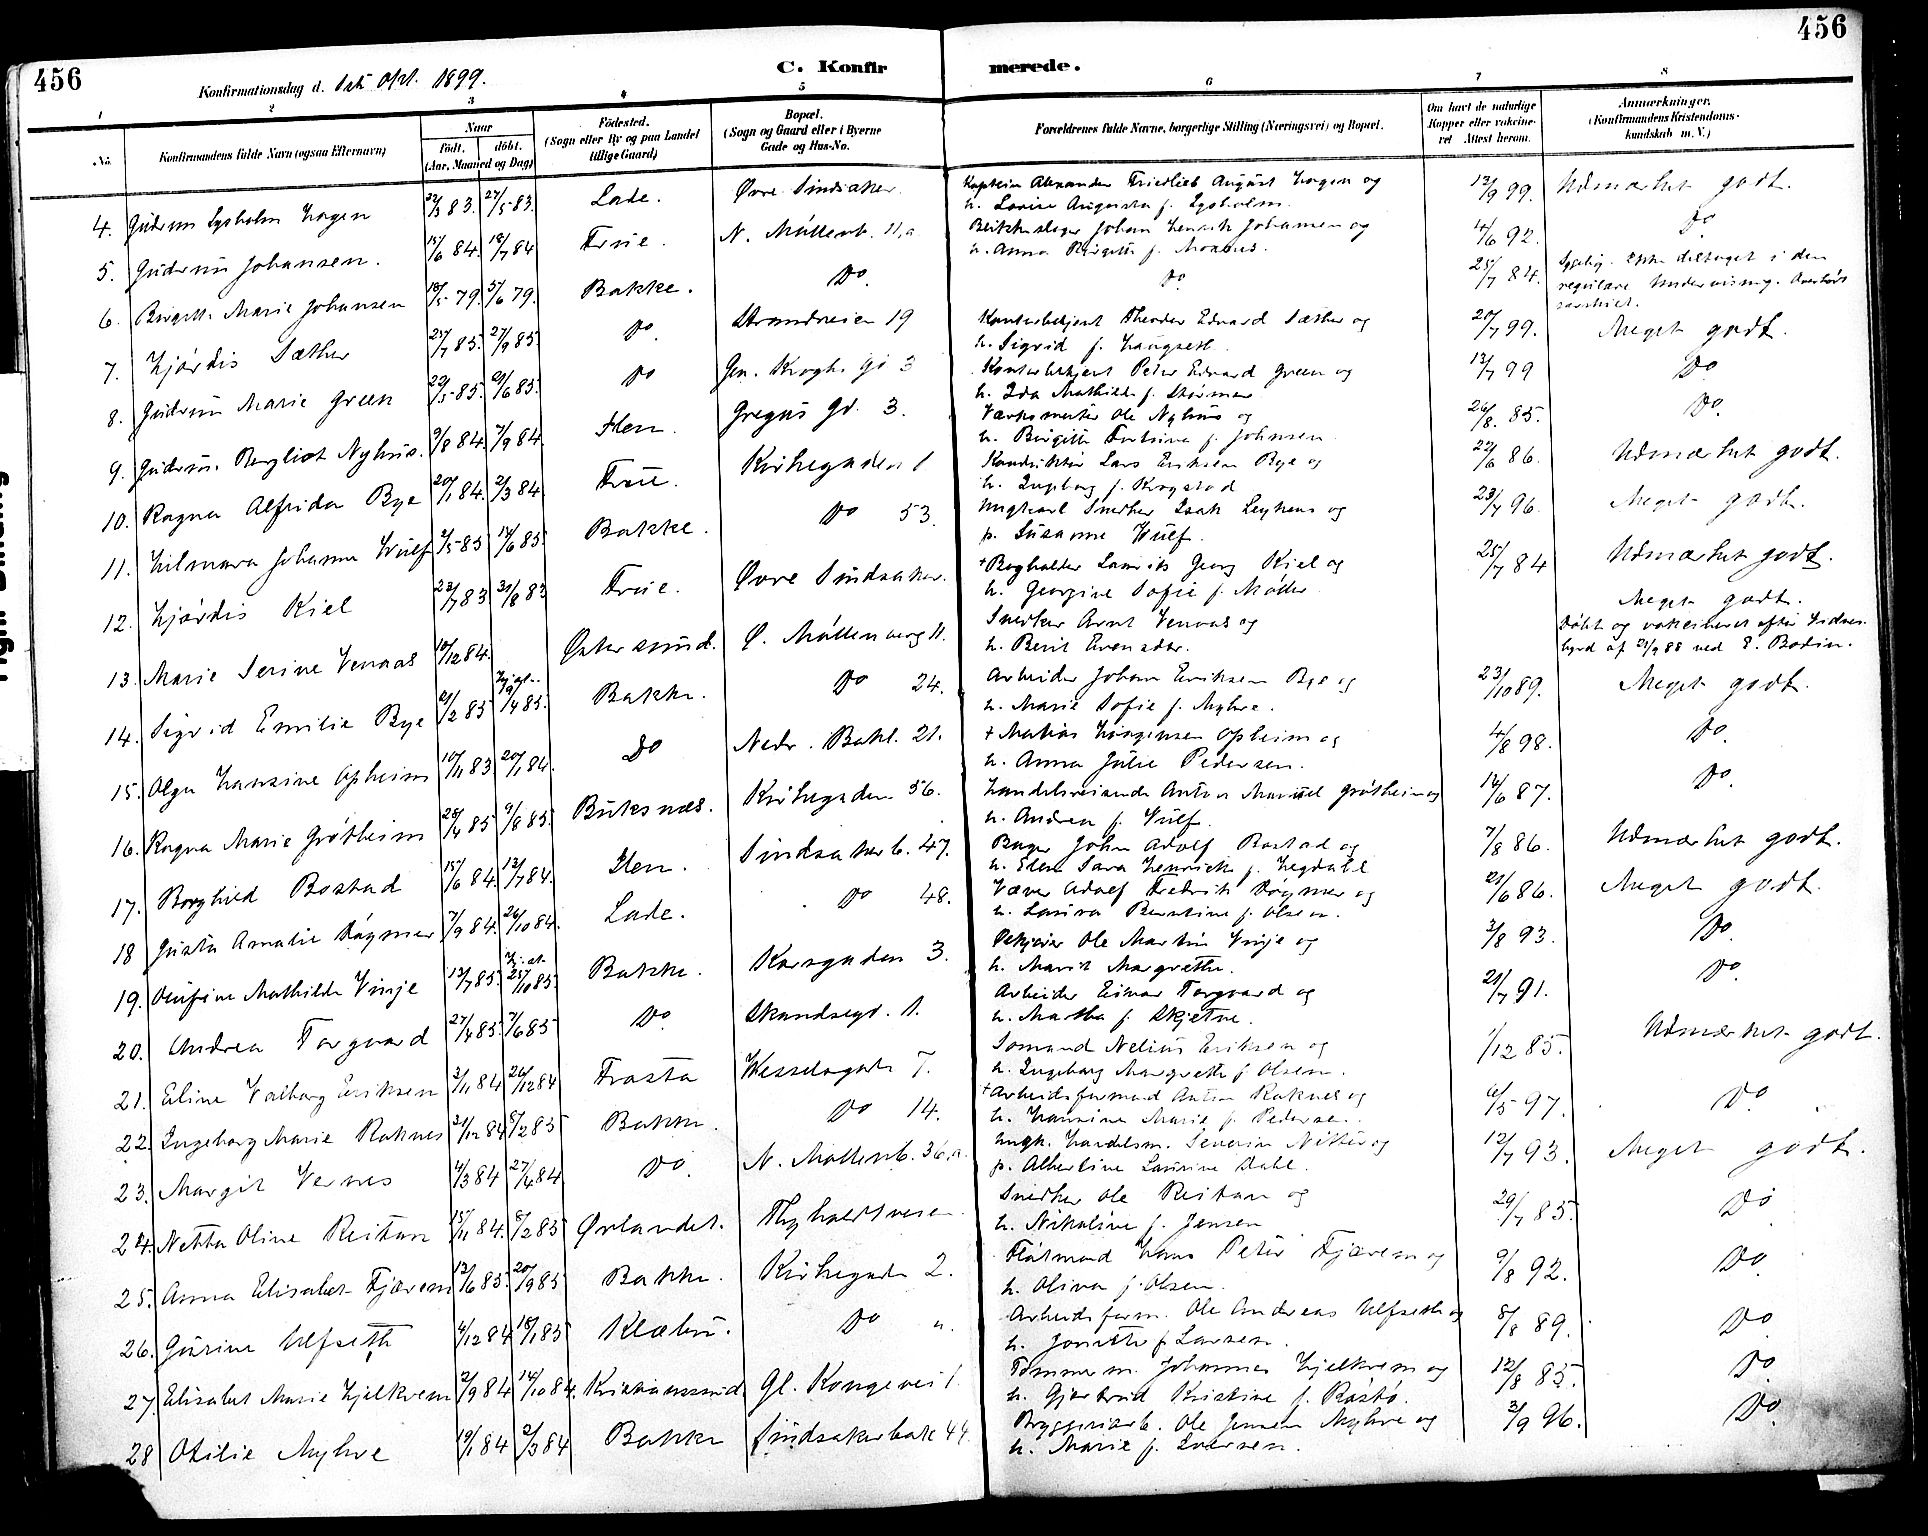 456
456
Konfirmationsdag d. 1ste Okt. 1899.
C. Konfirmerede.
1 2 3 4 5 6 7 8
No.
Konfirmandens fulde Navn (ogsaa Efternavn)
Naar
Født. døbt.
(Aar, Maaned og Dag)
Fødested.
(Sogn eller By og paa Landet
tillige Gaard)
Bopæl.
(Sogn og Gaard eller i Byerne
Gade og Hus-No.
Forældrenes fulde Navne, borgerlige Stilling (Næringsvei) og Bopæl.
Om havt de naturlige
Kopper eller vakcine-
ret Attest herom.
Anmærkninger.
(Konfirmandens Kristendoms-
kundskab m. V.)
4. Gudrun Lysholm Hagen 22/3 83. 27/5 83. Lade. Øvre Sindsaker. Kaptein Alexander Friedlieb August Hagen og 13/9 99. Udmærket godt.
h. Lovise Augusta f. Lysholm.
5. Gudrun Johansen. 15/6 84. 18/7 84 Frue. N. Møllenb. 11,a Blikkenslager Johan Henrik Johansen og 4/6 92. Do
h. Anna Birgitte f. Moxnes.
6. Birgitte Marie Johansen 18/5 79. 3/6 79. Bakke. Do. Do. 25/7 84. Sygelig. Ikke deltaget i den
regulære Undervisning. Overhørt
særskilt.
7. Hjørdis Sæther 25/7 85. 27/9 85. Do Strandveien 19 Kontorbetjent Theodor Edvard Sæther og 20/7 99. Meget godt.
h. Sigrid f. Haugseth.
8. Gudrun Marie Green 29/5 85. 9/6 85. Do Gen. Kroghs gd 3 Kontorbetjent Peter Edvard Green og 13/7 99 Do
h. Ida Mathilde f. Størmer
9. Gudrun Bergliot Nyhus. 9/8 84. 7/9 84. Ilen. Gregus Gd. 3. Værksmester Ole Nyhus og 26/8. 85. Do.
h. Birgitte Fortsina f. Johnsen.
10. Ragna Alfrida Bye 20/1 84. 2/3 84 Frue. Kirkegaden 1 Konduktør Lars Eriksen Bye og 29/6 86. Udmærket godt.
h. Ingeborg f. Krogstad
11. Hilmara Johanna Wulf 2/5 85 14/6 85. Bakke. Do 53. Ungkarl Snedker Isak Leykens og 23/7 96. Meget godt.
p. Susanne Wulf.
12. Hjørdis Kiel 23/7 83 31/8 83 Frue. Øvre Sindsaker. + Bogholder Laurits Georg Kiel og 25/7 84 Udmærket godt.
h. Georgine Sofie f. Møller.
13. Marie Serine Venaas 10/12 84. Østersund. Ø. Møllenberg 11. Snedker Arnt Venaas og Meget godt.
h. Berit Evensdtr. Døbt og vakcineret efter Vidnes-
byrd af 21/9 88 ved E. Bodin.
14. Sigrid Emilie Bye 21/2 85 9/4 85. Bakke. Do 24. Arbeider Johan Eriksen Bye og 23/10 89. Meget godt.
h. Marie Sofie f. Myhre.
15. Olga Hansine Opheim 10/11 83 20/1 84. Do Nedr. Bakl. 21. + Matias Jørgensen Opheim og 4/8 98. Do.
h. Anna Julie Pedersen.
16. Ragna Marie Grøtheim 28/4 85 9/8 85. Buksnæs. Kirkegaden 56. Handelsreisende Anton Manuel Grøtheim og 14/6 87. Do.
h. Andrea f. Wulf.
17. Borghild Bostad 15/6 84. 13/7 84. Ilen. Sindsakerb. 47. Bager Johan Adolf Bostad og 7/8 86. Udmærket godt.
h. Elen Sara Henrich f. Hegdahl
18 Gusta Amalie Røymer 7/9 84. 26/10 84. Lade. Do 48. Væver Adolf Fredrik Røymer og 21/6 86. Meget godt.
h. Laurine Berntine f. Olsen.
19. Olufine Mathilde Vinje 13/7 85. 25/10 85. Bakke. Korsgaden 3. Ole Martin Vinje og 3/8 93. Do.
h. Marit Margrethe.
20. Andrea Torgaard 27/4 85. 7/6 85 Do. Skandsegd. 1. Arbeider Einar Torgaard og 21/7 91. Do.
h. Martha f. Skjetne.
21. Eline Valborg Eriksen 3/11 84 26/12 84 Frosta Wesselsgade 7. Sømand Nelius Eriksen og 1/12 85. Udmærket godt.
h. Ingeborg Margrethe f. Olsen.
22. Ingeborg Marie Raknes 24/12 84 8/2 85 Bakke. Do 14. + Arbeidsformand Anton Raknes og 6/5 97. Do
h. Hansine Marie f. Pedersen.
23. Margit Vernes 4/3 84 27/4 84 Do. N. Møllenb. 36,a. Ungk. Handelsm. Severin Nitter og 12/7 93. Meget godt.
p. Albertine Laurine Dahl.
24. Netta Oline Reitan 15/11 84. 8/2 85 Ørlandet. Thyholdtveien. Snedker Ole Reitan og 29/7 85. Do
h. Nikoline f. Jensen
25. Anna Elisabet Fjærem 13/6 85. 20/9 85 Bakke. Kirkegade 2. Hans Peter Fjærem og 9/8 92. Do.
h. Olina f. Olsen.
26. Gusine Ulfseth 4/12 84 18/1 85 Klæbu. Do " Arbeidsform. Ole Andreas Ulfseth og 8/8 89. Do.
h. Jonette f. Larsen.
27. Elisabet Marie Hjelkrem 2/9 84 14/10 84. Kristianssund Gl. Kongevei 1. Tømmerm. Johannes Hjelkrem og 12/8 85. Do
h. Gjertrud Kristine f. Røstø.
28 Otilie Myhre 19/1 84 2/3 84 Bakke Sindsakerbak 44. Bryggeriarb. Ole Jensen Myhre og 3/9 96. Do
h. Marie f. Iversen.